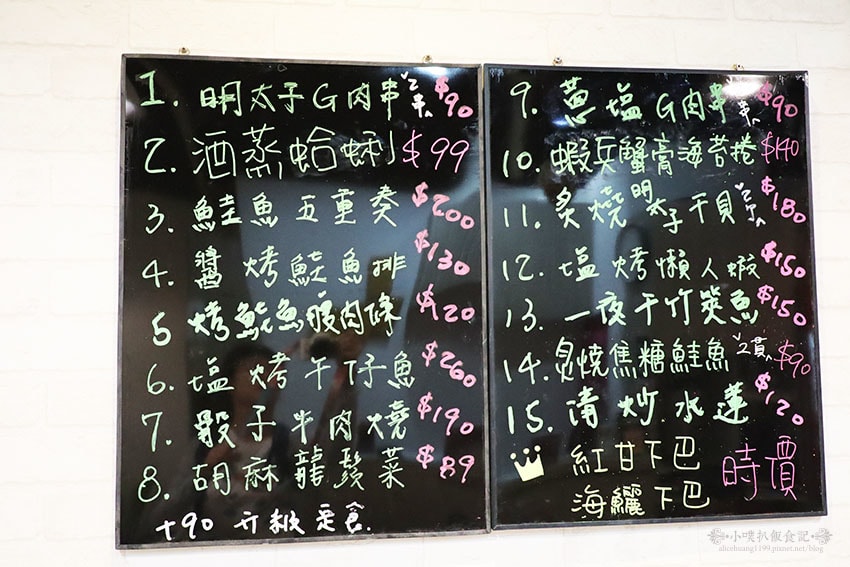 1. 明太子G肉串 2串入 $90
2. 酒蒸蛤蜊 $99
3. 鮭魚五重奏 $200
4. 醬烤鮭魚排 $130
5 烤鮭魚腹肉條 $120
6. 塩烤午仔魚 $260
7. 骰子牛肉燒 $190
8. 胡麻龍鬚菜 $89
+90 升級定食.
9. 蔥塩G肉串 2串入 $90
10. 蝦兵蟹膏海苔捲 $140
11. 炙燒明太子干貝 $180
12. 塩烤懶人蝦 $150
13. 一夜干竹筴魚 $150
14. 炙燒焦糖鮭魚 2貫入 $90
15. 清炒水蓮 $120
紅甘下巴
海鱺下巴
時價
小噗扒飯食記
alicehuang1199.pixnet.net/blog